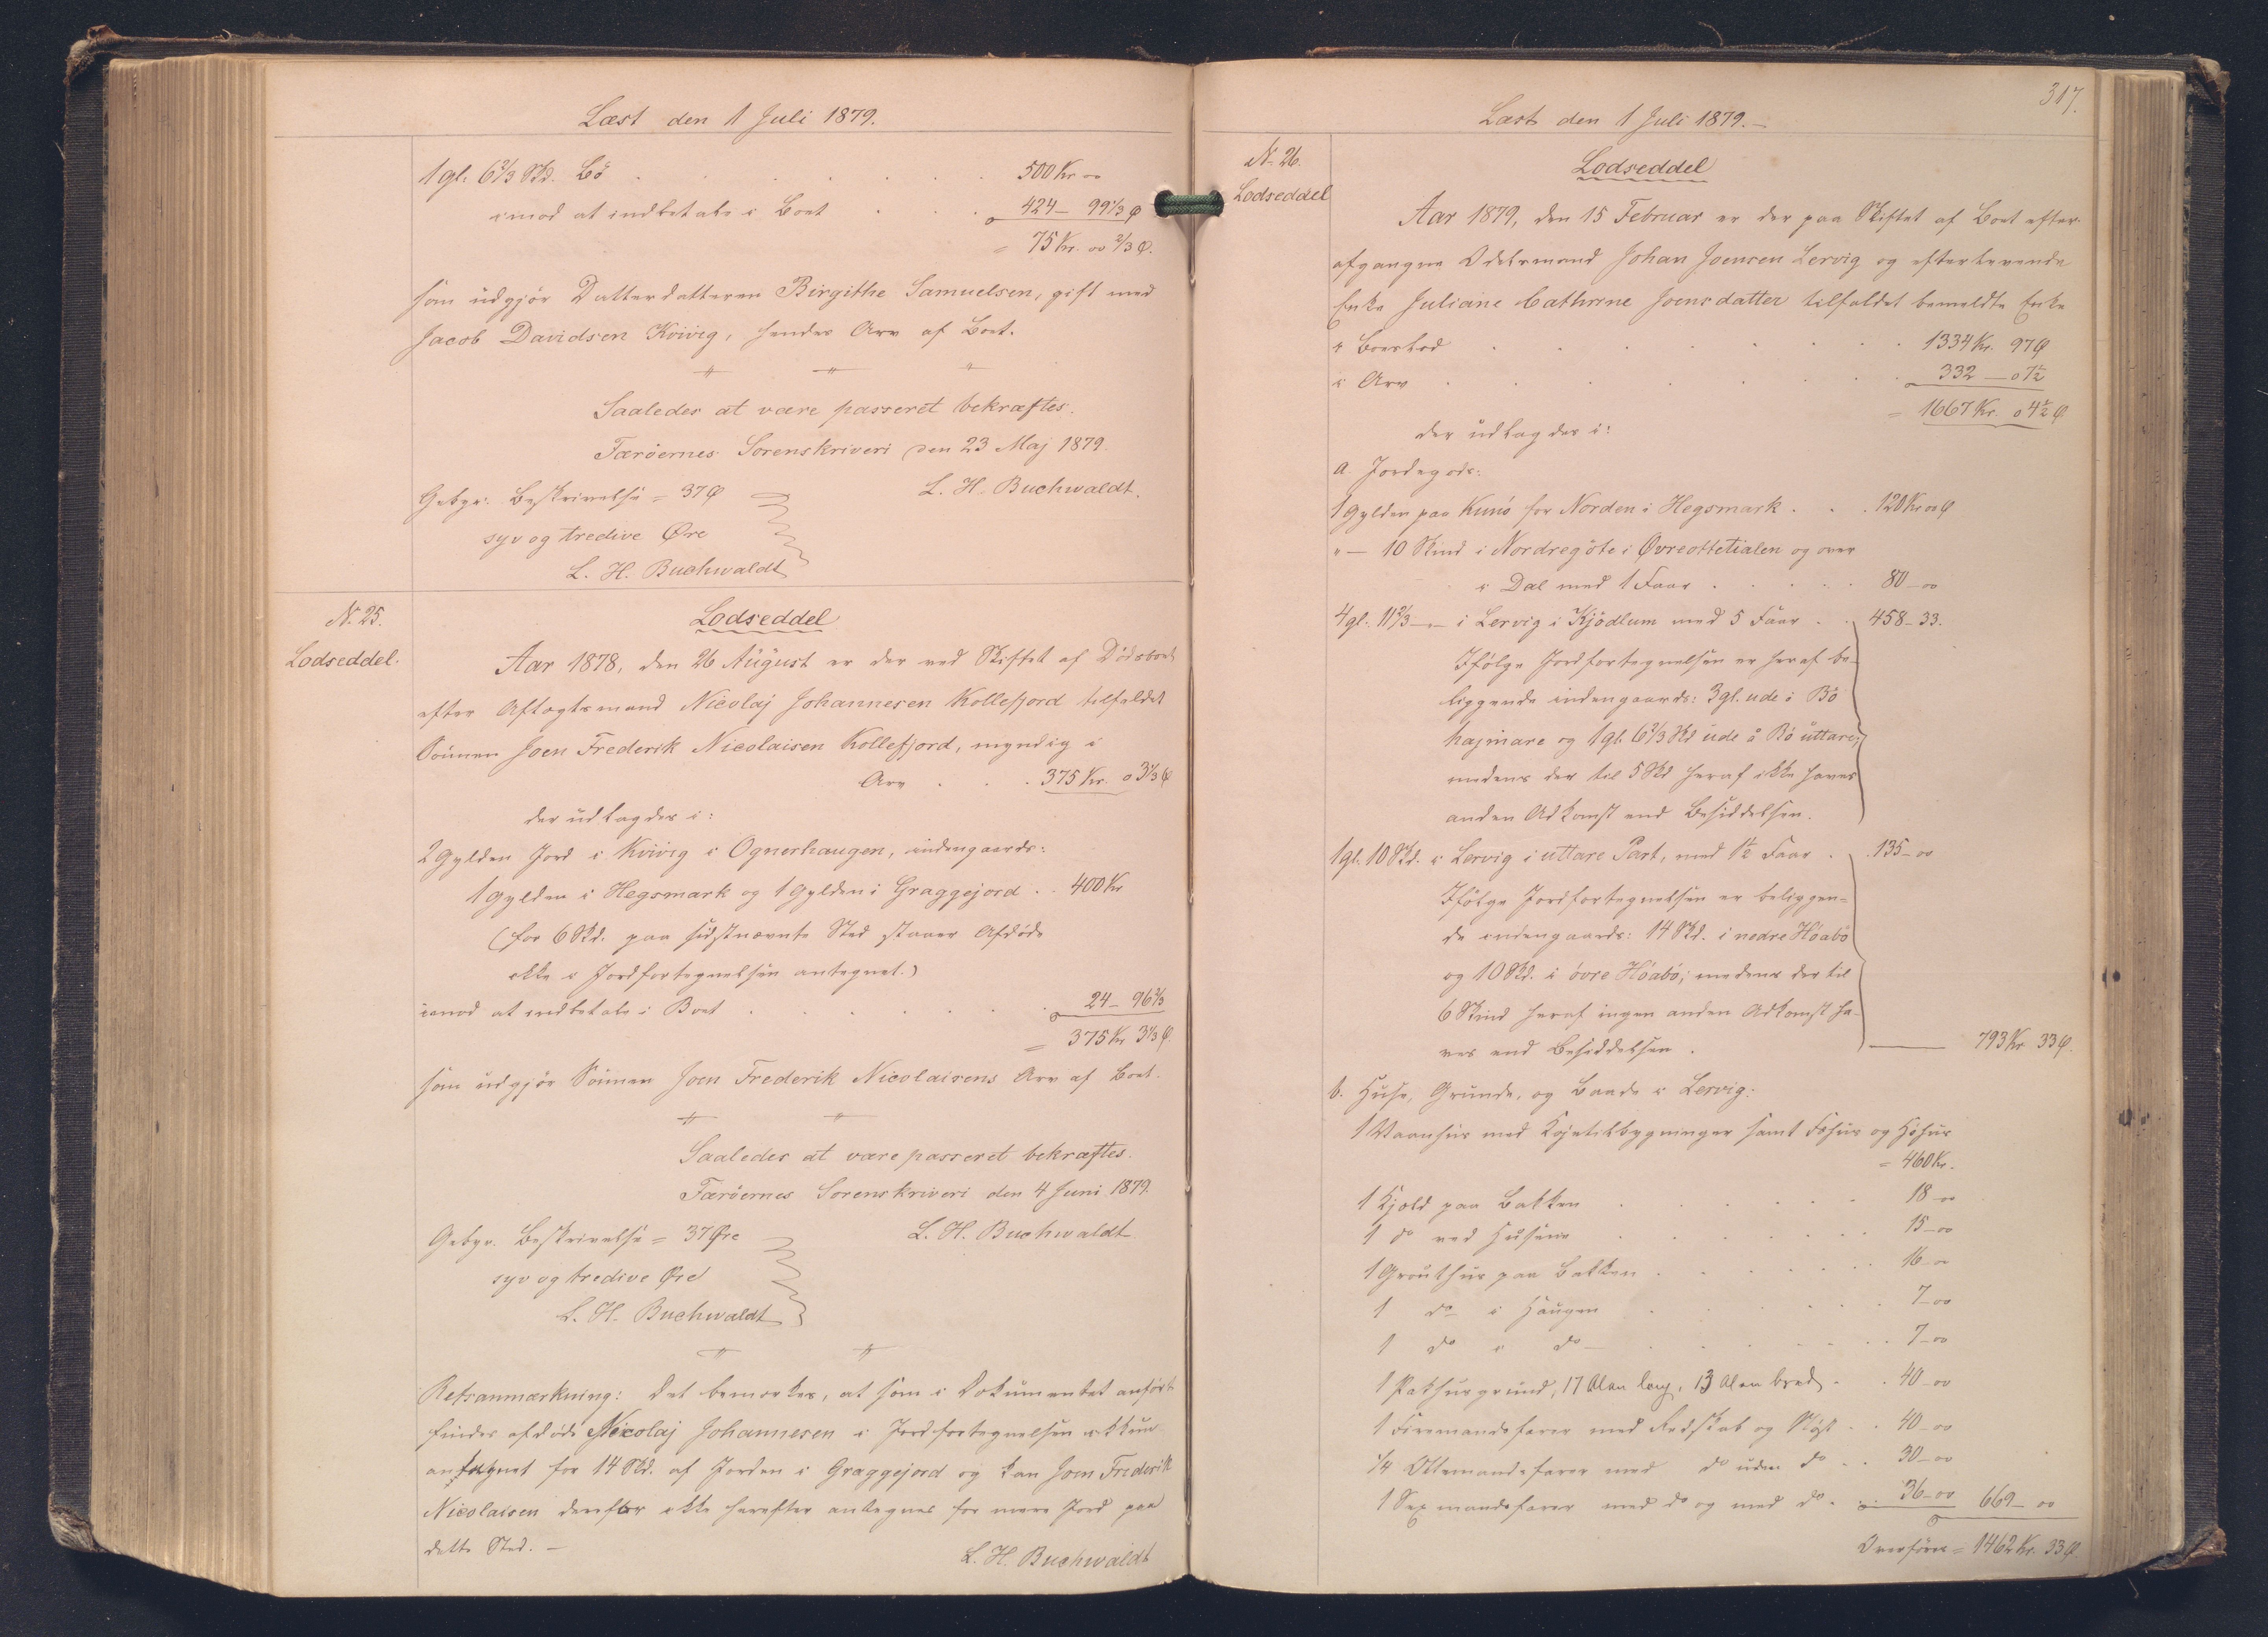 Læst den 1 Juli 1879.
1 gl. 6 2/3 Skd. Bö . . . 500 Kr. 00
imod at indbetale i Boet . . . 424 — 99 1/3 Ø
= 75 Kr. 00 2/3 Ø.
som udgjør Datterdatteren Birgithe Samuelsen, gift med
Jacob Davidsen Kvivig, hendes Arv af Boet.
Saaledes at være passeret bekræftes.
Færöernes Sorenskriveri den 23 Maj 1879.
Gebyr: Beskrivelse = 37 Ø L. H. Buchwaldt.
syv og tredive Øre
L. H. Buchwaldt
N. 25.
Lodseddel.
Lodseddel
Aar 1878, den 26 August er der ved Skiftet af Dödsboet
efter Aftægtsmand Nicolaj Johannesen Kollefjord tilfaldet
Sönnen Joen Frederik Nicolaisen Kollefjord, myndig i
Arv . . . 375 Kr. 03 1/3 Ø
der udlagdes i:
2 Gylden Jord i Kvivig i Ognerhaugen, indengaards:
1 Gylden i Hegsmark og 1 Gylden i Graggejord . . 400 Kr
(for 6 Skd. paa sidstnævnte Sted staaer Afdöde
ikke i Jordfortegnelsen antegnet.)
imod at indbetale i Boet . . . 24 — 96 2/3
= 375 Kr 3 1/3 Ø.
som udgjør Sönnen Joen Frederik Nicolaisens Arv af Boet.
Saaledes at være passeret bekræftes.
Færöernes Sorenskriveri den 4 Juni 1879.
Gebyr. Beskrivelse = 37 Øre L. H. Buchwaldt
syv og tredive Øre
L. H. Buchwaldt
Retsanmærkning: Det bemærkes, at som i Dokumentet anført
findes afdöde Nicolaj Johannesen i Jordfortegnelsen ikkun
antegnet for 14 Skd. af Jorden i Graggejord og kan Joen Frederik
Nicolaisen derfor ikke herefter antegnes for mere Jord paa
dette Sted. —
L. H. Buchwaldt
317.
Læst den 1 Juli 1879. —
N. 26.
Lodseddel
Lodseddel
Aar 1879, den 15 Februar er der paa Skiftet af Boet efter
afgangne Odelsmand Johan Joensen Lervig og efterlevende
Enke Juliane Cathrine Joensdatter tilfaldet bemeldte Enke
i Boeslod . . . 1334 Kr. 97 Ø
i Arv . . . 332 — 07 1/2
= 1667 Kr. 04 1/2 Ø
der udlagdes i:
a. Jordegods:
1 Gylden paa Kunö for Norden i Hegsmark . . . 120 Kr 00 Ø
" — 10 Skind i Nordregöte i Øvreottetialen og over
i Dal med 1 Faar . . . 80 — 00
4 gl. 11 2/3 — " — i Lervig i Kjödlum med 5 Faar . . 458 — 33.
Ifölge Jordfortegnelsen er heraf be-
liggende indengaards: 3 gl. ude i Bö
hajmare og 1 gl. 6 2/3 Skd ude å Bö uttare;
medens der til 5 Skd heraf ikke haves
anden Adkomst end Besiddelsen.
1 gl. 10 Skd. i Lervig i uttare Part, med 1 1/2 Faar . 135 — 00
Ifölge Jordfortegnelsen er beliggen-
de indengaards: 14 Skd. i nedre Höabö
og 10 Skd. i övre Höabö; medens der til
6 Skind heraf ingen anden Adkomst ha-
ves end Besiddelsen. — 793 Kr 33 Ø.
b. Huse, Grunde, og Baade i Lervig:
1 Vaanhus med Kojetilbygninger samt Fæhus og Höhus
= 460 Kr.
1 Kjold paa Bakken . . . 18 — 00
1 do ved Husene . . . 15 — 00
1 Grouthus paa Bakken . . . 16 — 00
1 do i Haugen . . . 7 — 00
1 do i do — . . . 7 — 00
1 Pakhusgrund, 17 Alen lang, 13 Alen bred . . 40 — 00
1 Firemandsfarer med Redskab og Nøst . . 40 — 00
1/4 Ottemandsfarer med do uden do . . 30 — 00
1 Sexmandsfarer med do og med do . . 36 — 00 669 — 00
Overføres = 1462 Kr. 33 Ø.